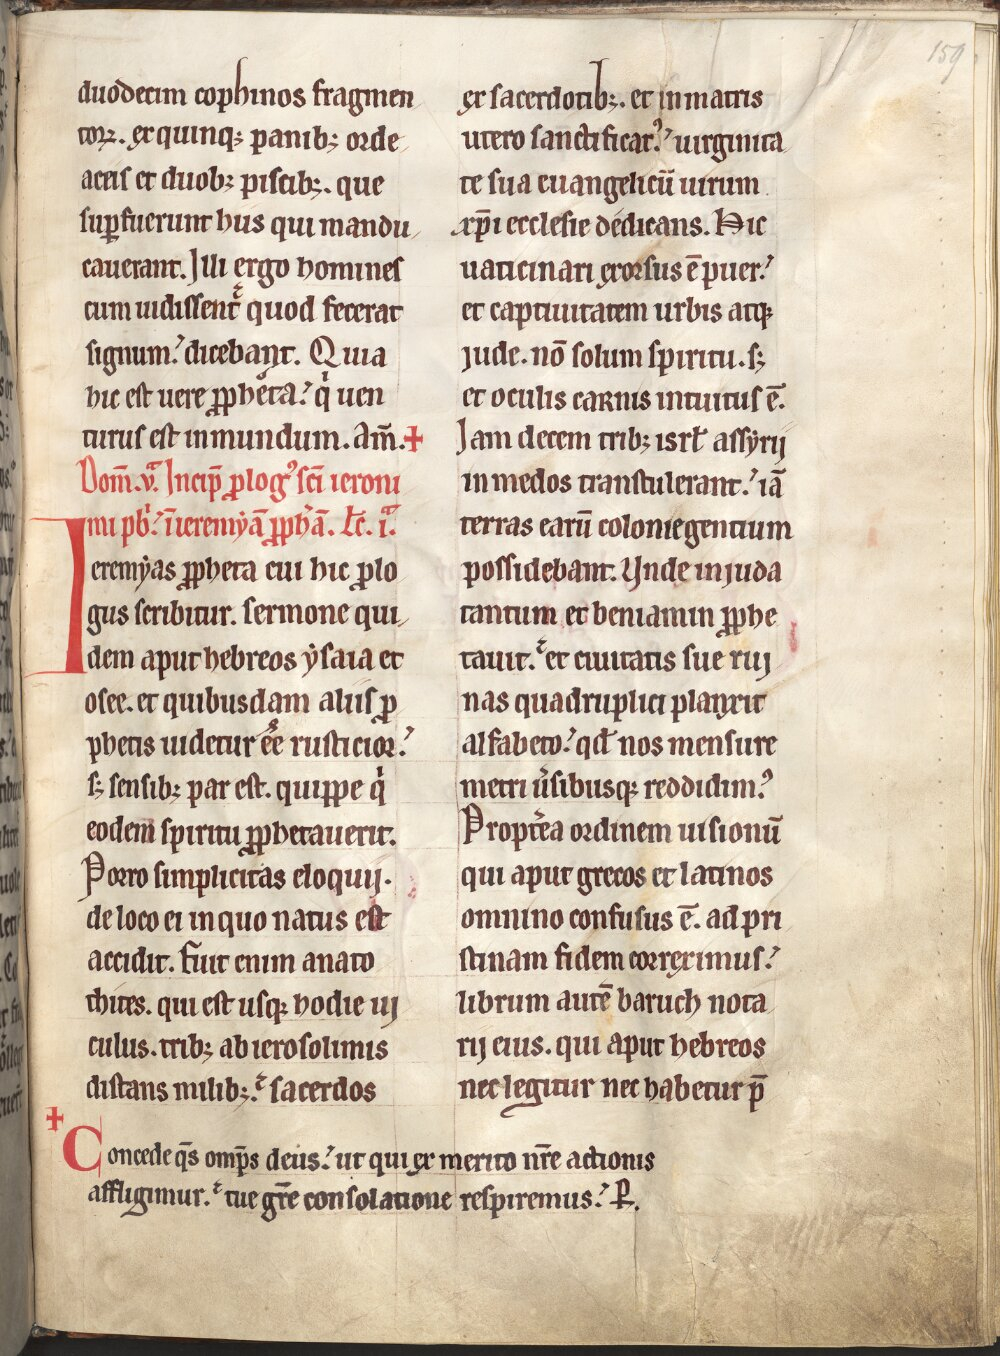 159
duodecim cophinos fragmen
toꝝ. ex quinqꝫ panibꝫ orde
aceis et duobꝫ piscibꝫ. que
suꝑfuerunt hus qui mandu
cauerant. Illi ergo homines
cum uidissent quod fecerat
signum. dicebant. Quia
hic est uere ꝓpheta. q̇ uen
turus est in mundum. Am̄. +
Dom̄. v̄. Incip̄ ꝓlogꝰ sc̄i ieroni
mi pb̄i. in ieremẏā ꝓph̄ā. Lc̄. i.ᵃ
Ieremẏas ꝓpheta cui hic ꝓlo
gus scribitur. sermone qui
dem aput hebreos ẏsaia et
osee. et quibusdam aliis ꝓ
phetis uidetur ēe rusticior.
sꝫ sensibꝫ par est. quippe q̇
eodem spiritu ꝓphetauerit.
Porro simplicitas eloquij.
de loco ei in quo natus est
accidit. Fuit enim anato
thites. qui est usqꝫ hodie ui
culus. tribꝫ ab ierosolimis
distans milibꝫ. sacerdos
ex sacerdotibꝫ. et in matris
utero sanctificatꝰ. uirginita
te sua euangelicū uirum
xp̄i ecclesie dedicans. Hic
uaticinari exorsus ē puer.
et captiuitatem urbis atqꝫ
iude. nō solum spiritu. sꝫ
et oculis carnis intuitus ē.
Iam decem tribꝫ isrł assyrij
in medos transtulerant. iā
terras earū colonie gentium
possidebant. Unde in iuda
tantum et beniamin ꝓphe
tauit. et ciuitatis sue rui
nas quadruplici planxit
alfabeto. qđ nos mensure
metri u̇sibusqꝫ reddidimꝰ.
Propt̄ea ordinem uisionū
qui aput grecos et latinos
omnino confusus ē. ad pri
stinam fidem correximus.
librum autē baruch nota
rij eius. qui aput hebreos
nec legitur nec habetur p̄
+
Concede qs̄ omp̄s deus. ut qui ex merito nr̄e actionis
affligimur. tue gr̄e consolatione respiremus. P̄.